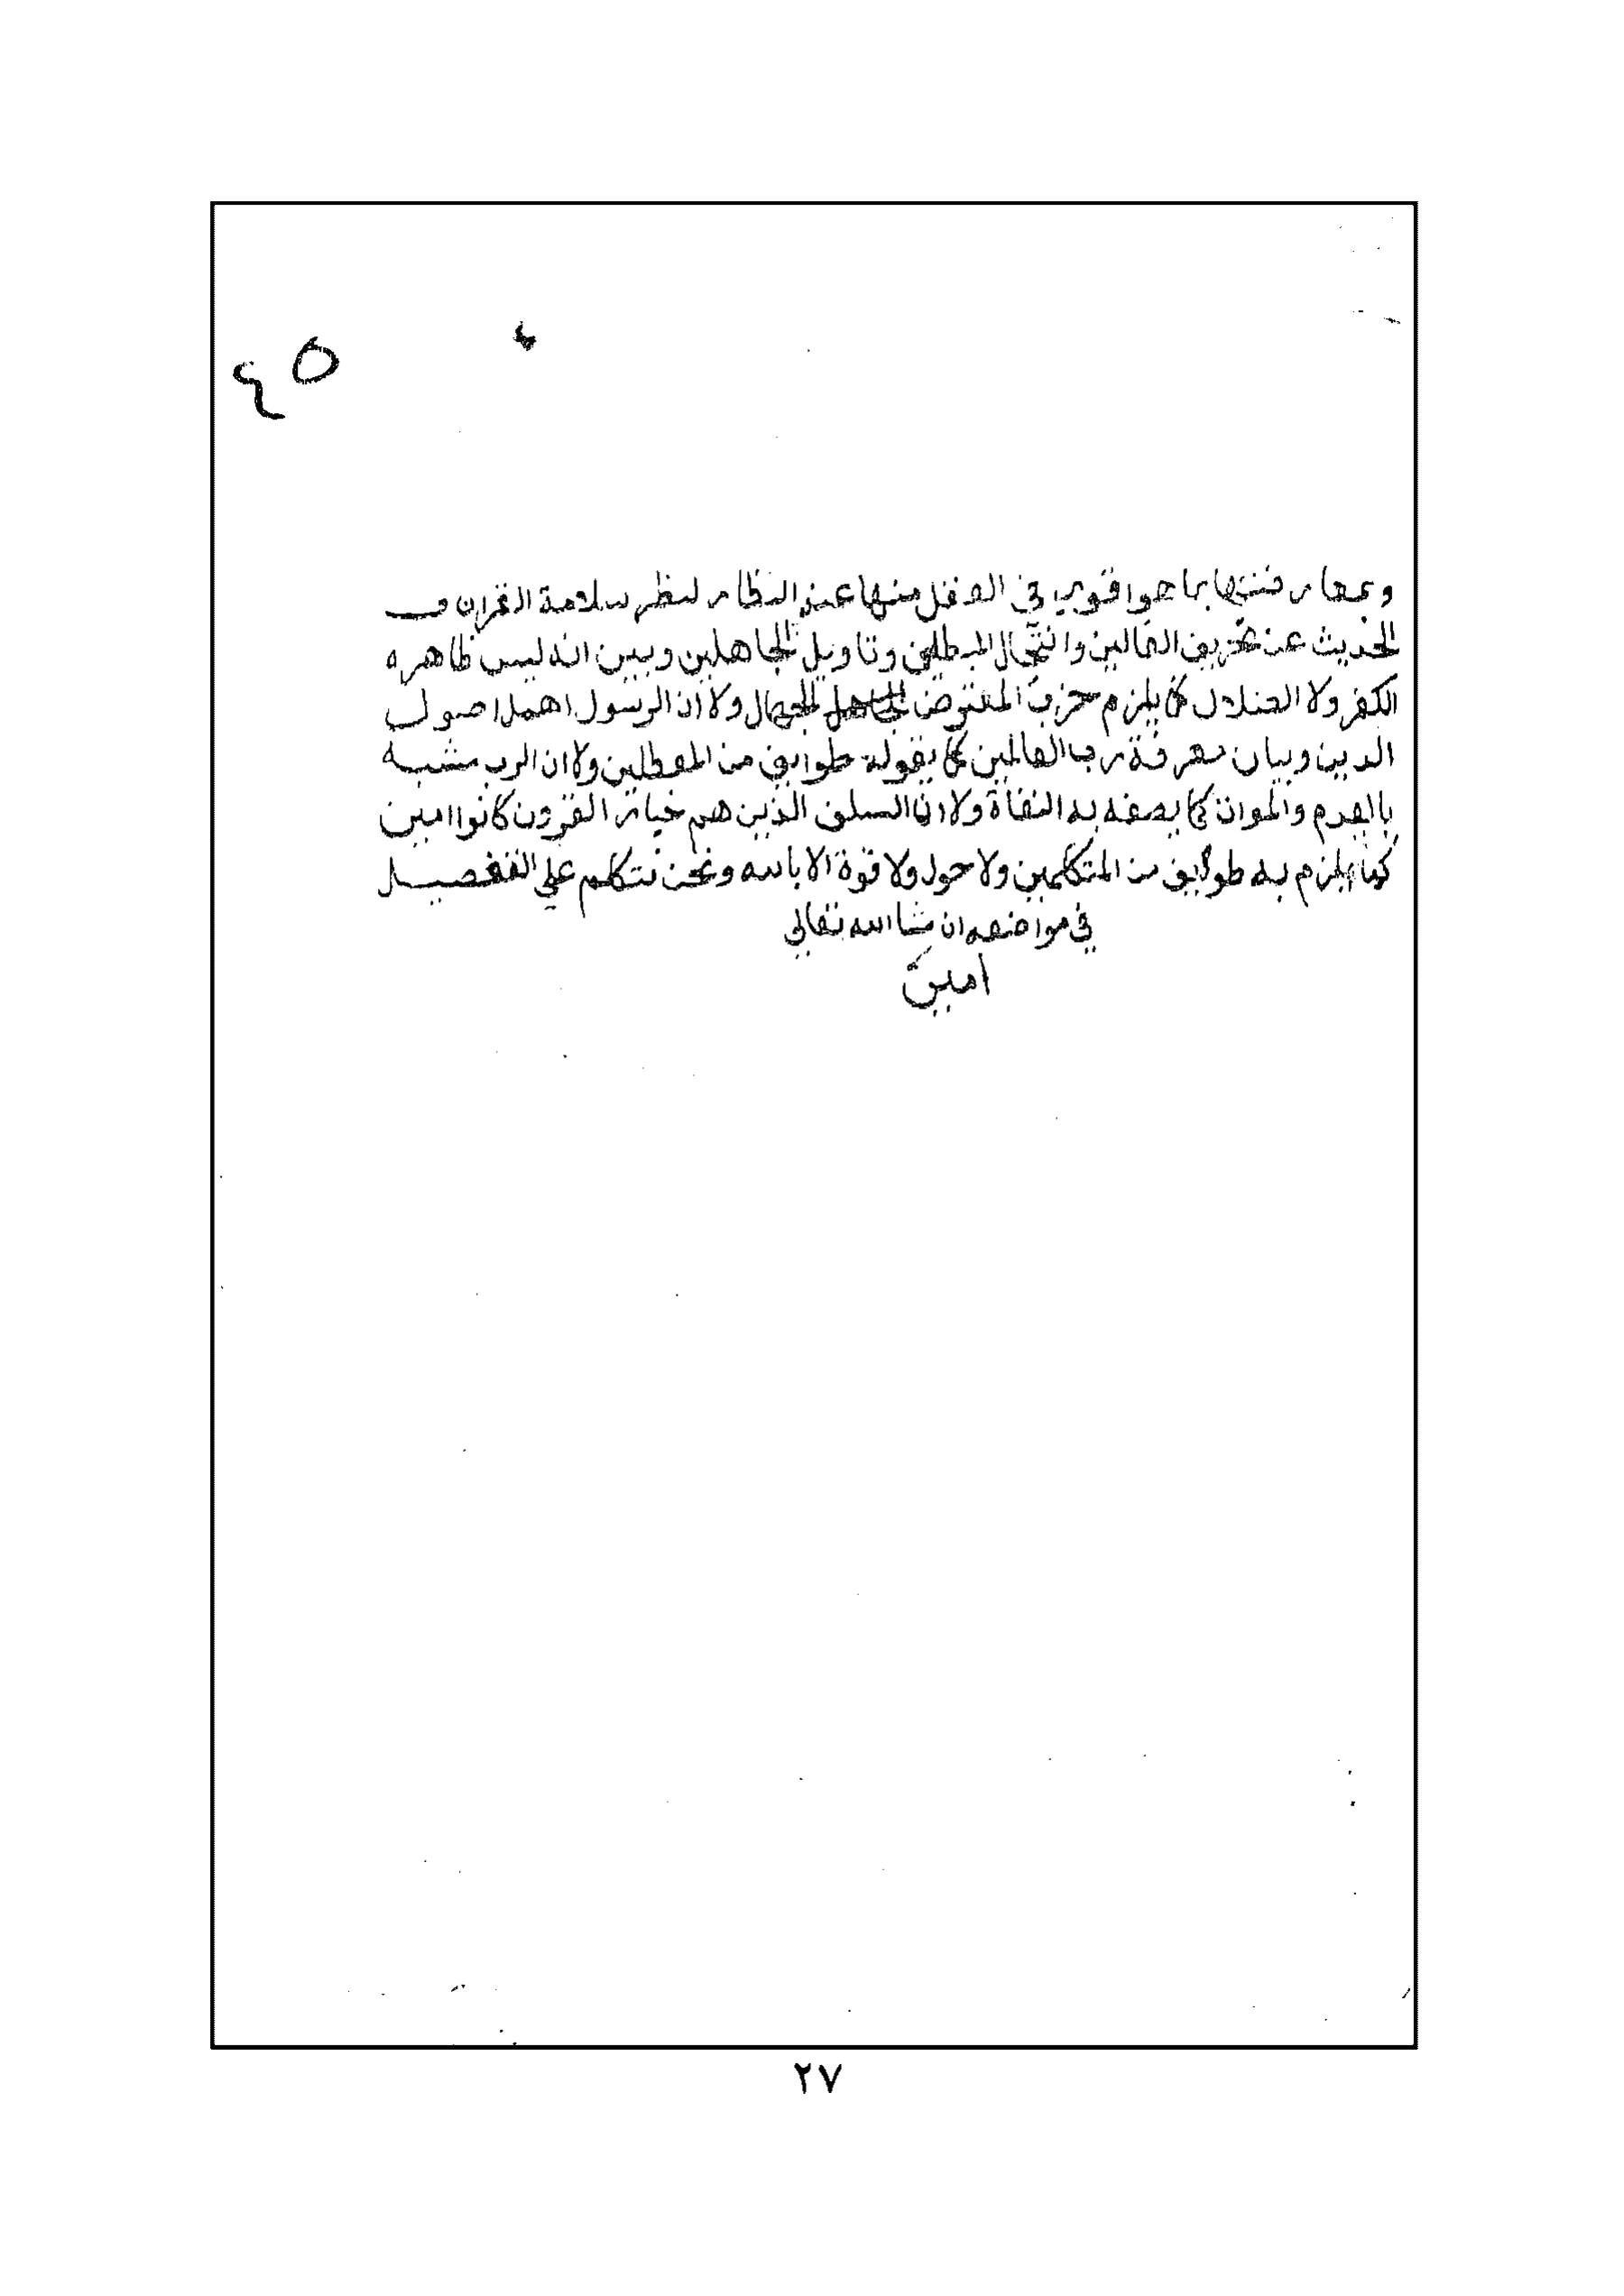 ٤٥
وبمعارضتها بما هو اقوى في العقل منها عند النظار لنظر سلامة القران و
الحديث عن تحريف الغالين وانتحال المبطلين وتاويل الجاهلين وبين انه ليس ظاهره
الكفر ولا الضلال كما يلزم حزب المعترض الجهال ولا ان الرسول اهمل اصول
الدين وبيان معرفة رب العالمين كما يقوله طوايف من المعطلين ولا ان الرب مشبه
بالعدم والموات كما يصفه به النفاة ولا ان السلف الذين هم خيار القرون كانوا اميين
كما يلزم به طوايف من المتكلمين ولا حول ولا قوة الا بالله ونحن نتكلم علي التفصيل
في مواضعه ان شا الله تعالي
امين
٢٧